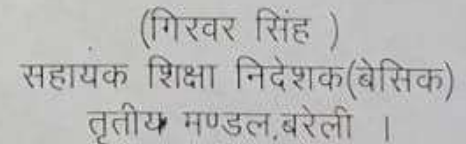 (गिरवर सिंह )
सहायक शिक्षा निदेशक(बेसिक)
तृतीय मण्डल,बरेली ।